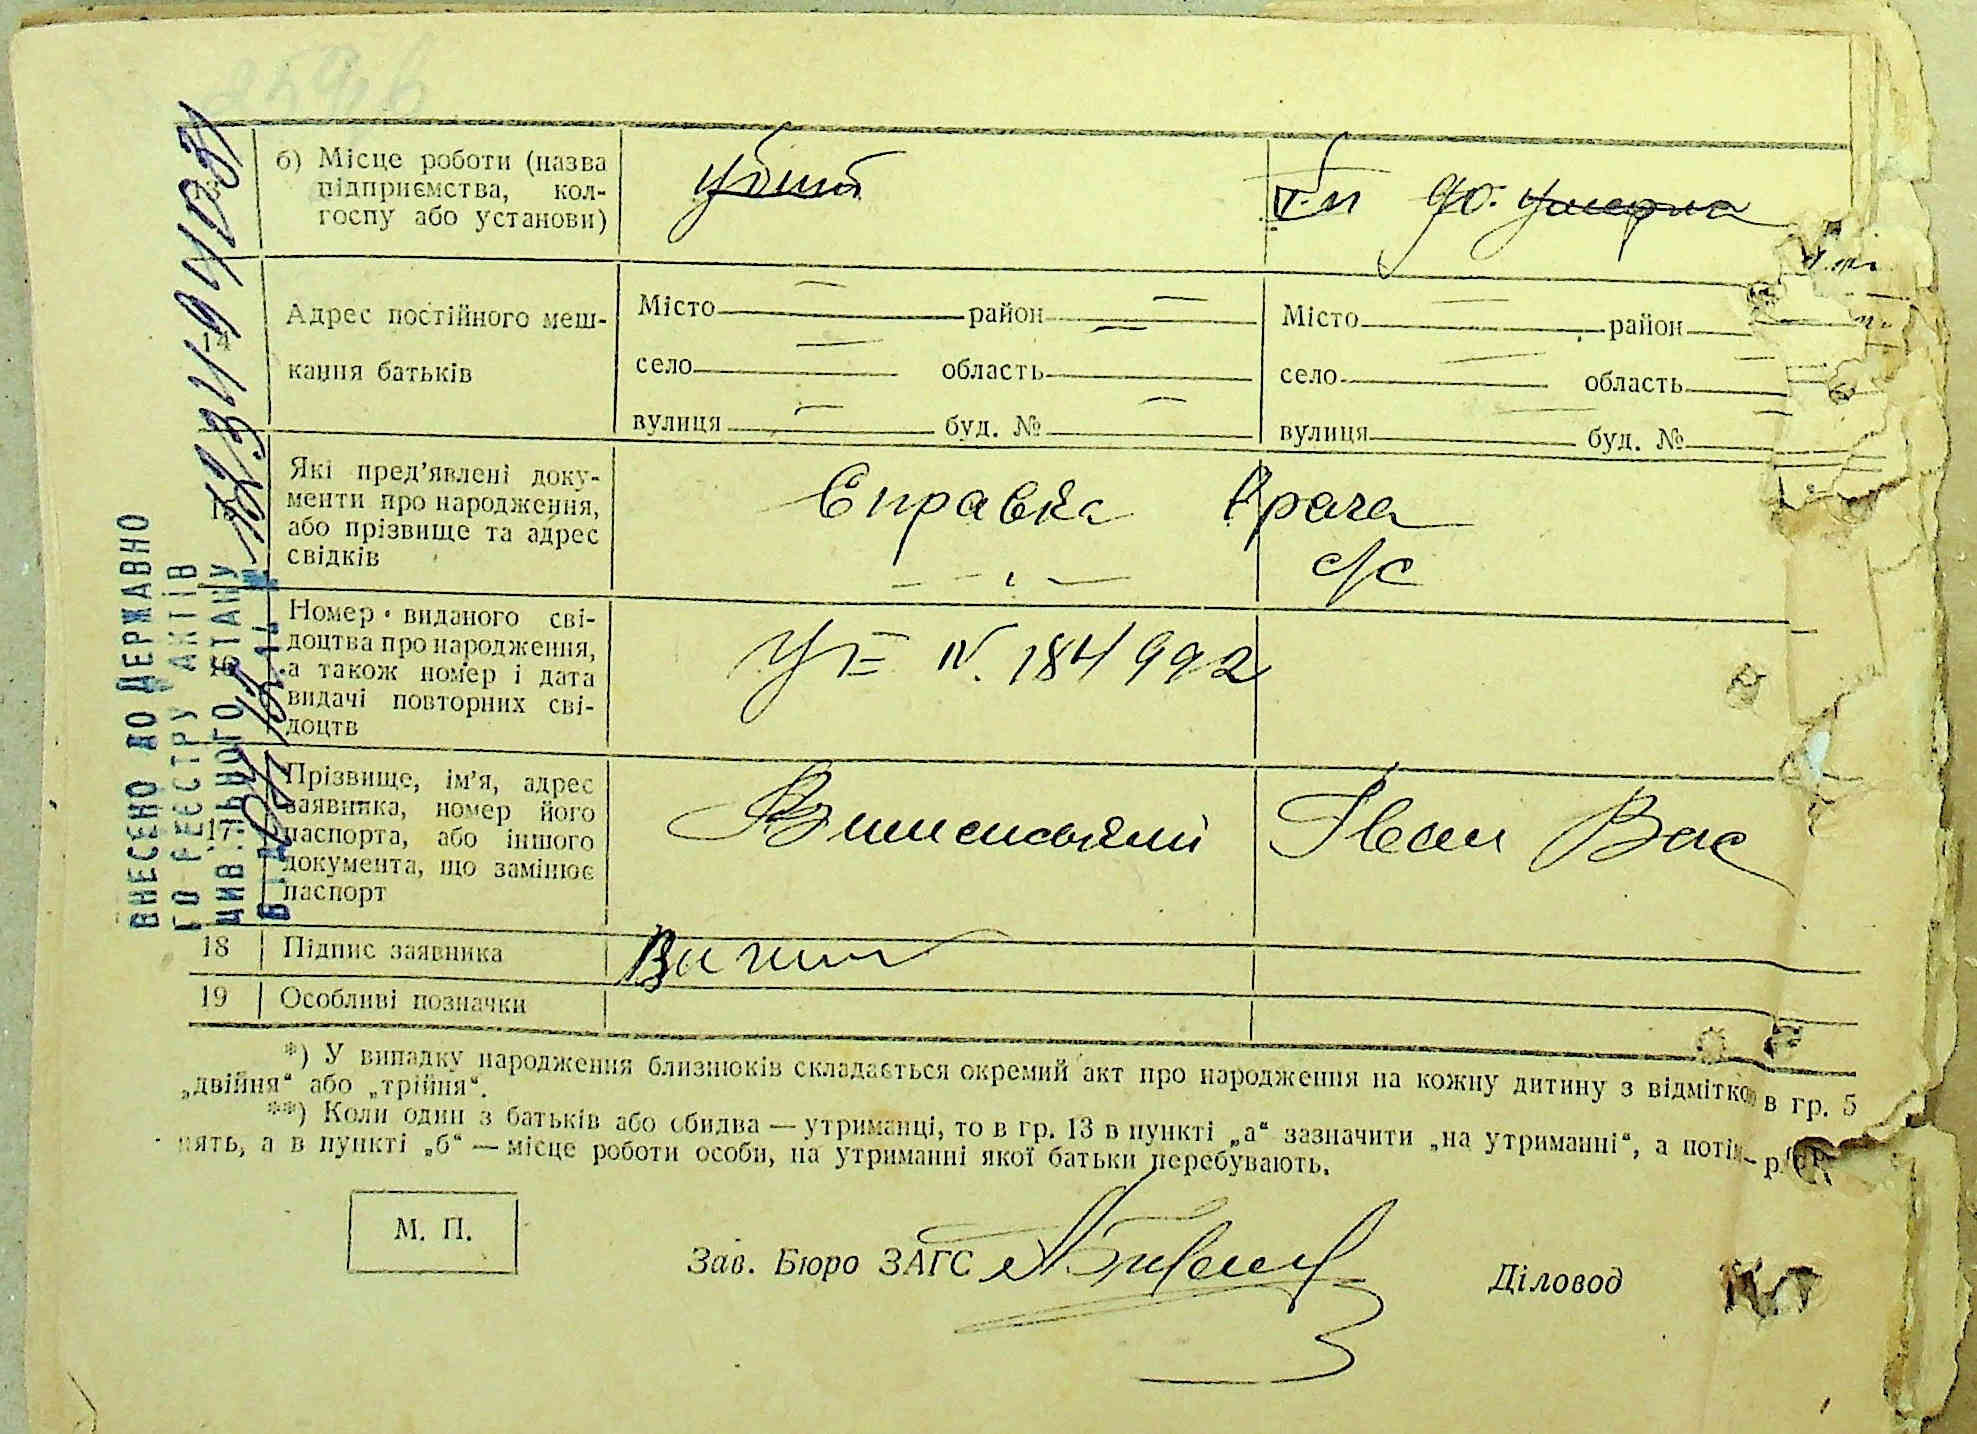 б) Місце роботи (назва
підприємства, кол-
госпу або установи)
убит
умерла
14
Адрес постійного меш-
кання батьків
Місто район
село область
вулиця буд. №
Місто район
село область
вулиця буд. №
15
Які пред’явлені доку-
менти про народження,
або прізвище та адрес
свідків
Справка Врача
с/с
16
Номер виданого сві-
доцтва про народження,
а також номер і дата
видачі повторних сві-
доцтв
N. 184992
17
Прізвище, ім’я, адрес
заявника, номер його
паспорта, або іншого
документа, що замінює
паспорт
Іван Вас
18 Підпис заявника
19 Особливі позначки
*) У випадку народження близнюків складається окремий акт про народження на кожну дитину з відміткою в гр. 5
„двійня“ або „трійня“.
**) Коли один з батьків або обидва — утриманці, то в гр. 13 в пункті „а“ зазначити „на утриманні“, а
а в пункті „б“ — місце роботи особи, на утриманні якої батьки перебувають.
М. П.
Зав. Бюро ЗАГС
Діловод
ВНЕСЕНО ДО ДЕРЖАВНО
ГО РЕЄСТРУ АКТІВ
ЦИВІЛЬНОГО СТАНУ
ВІД